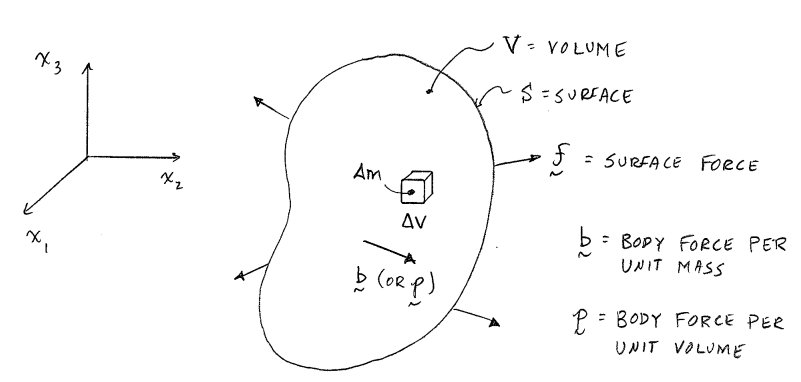 x₃
x₂
x₁
V = VOLUME
S = SURFACE
f = SURFACE FORCE
Δm
ΔV
b (OR p)
b = BODY FORCE PER
UNIT MASS
p = BODY FORCE PER
UNIT VOLUME